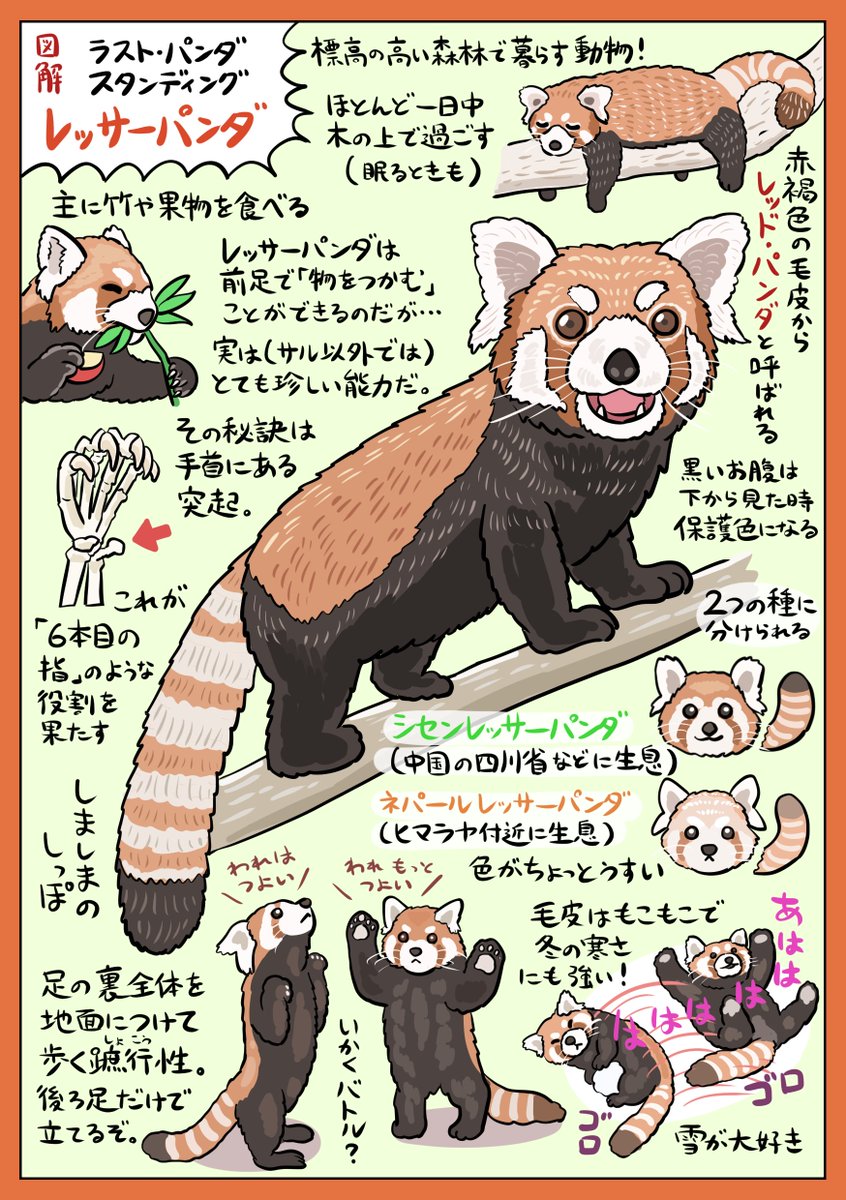 図解
ラスト・パンダ
スタンディング
レッサーパンダ
標高の高い森林で暮らす動物!
ほとんど一日中
木の上で過ごす
(眠るときも)
赤褐色の毛皮から
レッド・パンダと呼ばれる
主に竹や果物を食べる
レッサーパンダは
前足で「物をつかむ」
ことができるのだが…
実は(サル以外では)
とても珍しい能力だ。
その秘訣は
手首にある
突起。
これが
「6本目の
指」のような
役割を
果たす
黒いお腹は
下から見た時
保護色になる
2つの種に
分けられる
シセンレッサーパンダ
(中国の四川省などに生息)
ネパールレッサーパンダ
(ヒマラヤ付近に生息)
色がちょっとうすい
しましまの
しっぽ
われは
つよい
われもっと
つよい
いかくバトル?
足の裏全体を
地面につけて
歩く蹠行性。
しょこう
後ろ足だけで
立てるぞ。
毛皮はもこもこで
冬の寒さ
にも強い!
あははは
ははは
ゴロ
ゴロ
雪が大好き